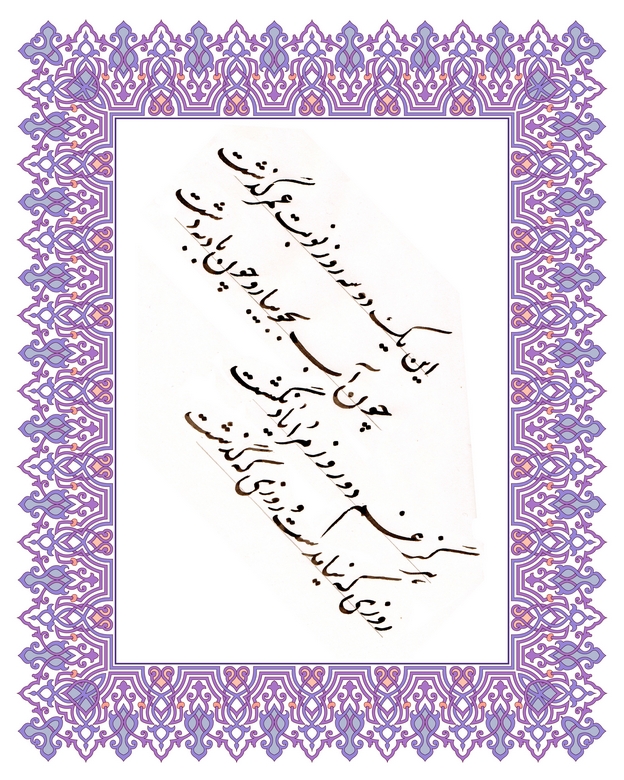 این یک دو سه روز نوبت عمر گذشت
چون آب بجویبار و چون باد بدشت
هرگز غم دو روز مرا یاد نگشت
روزی که نیامدست و روزی که گذشت